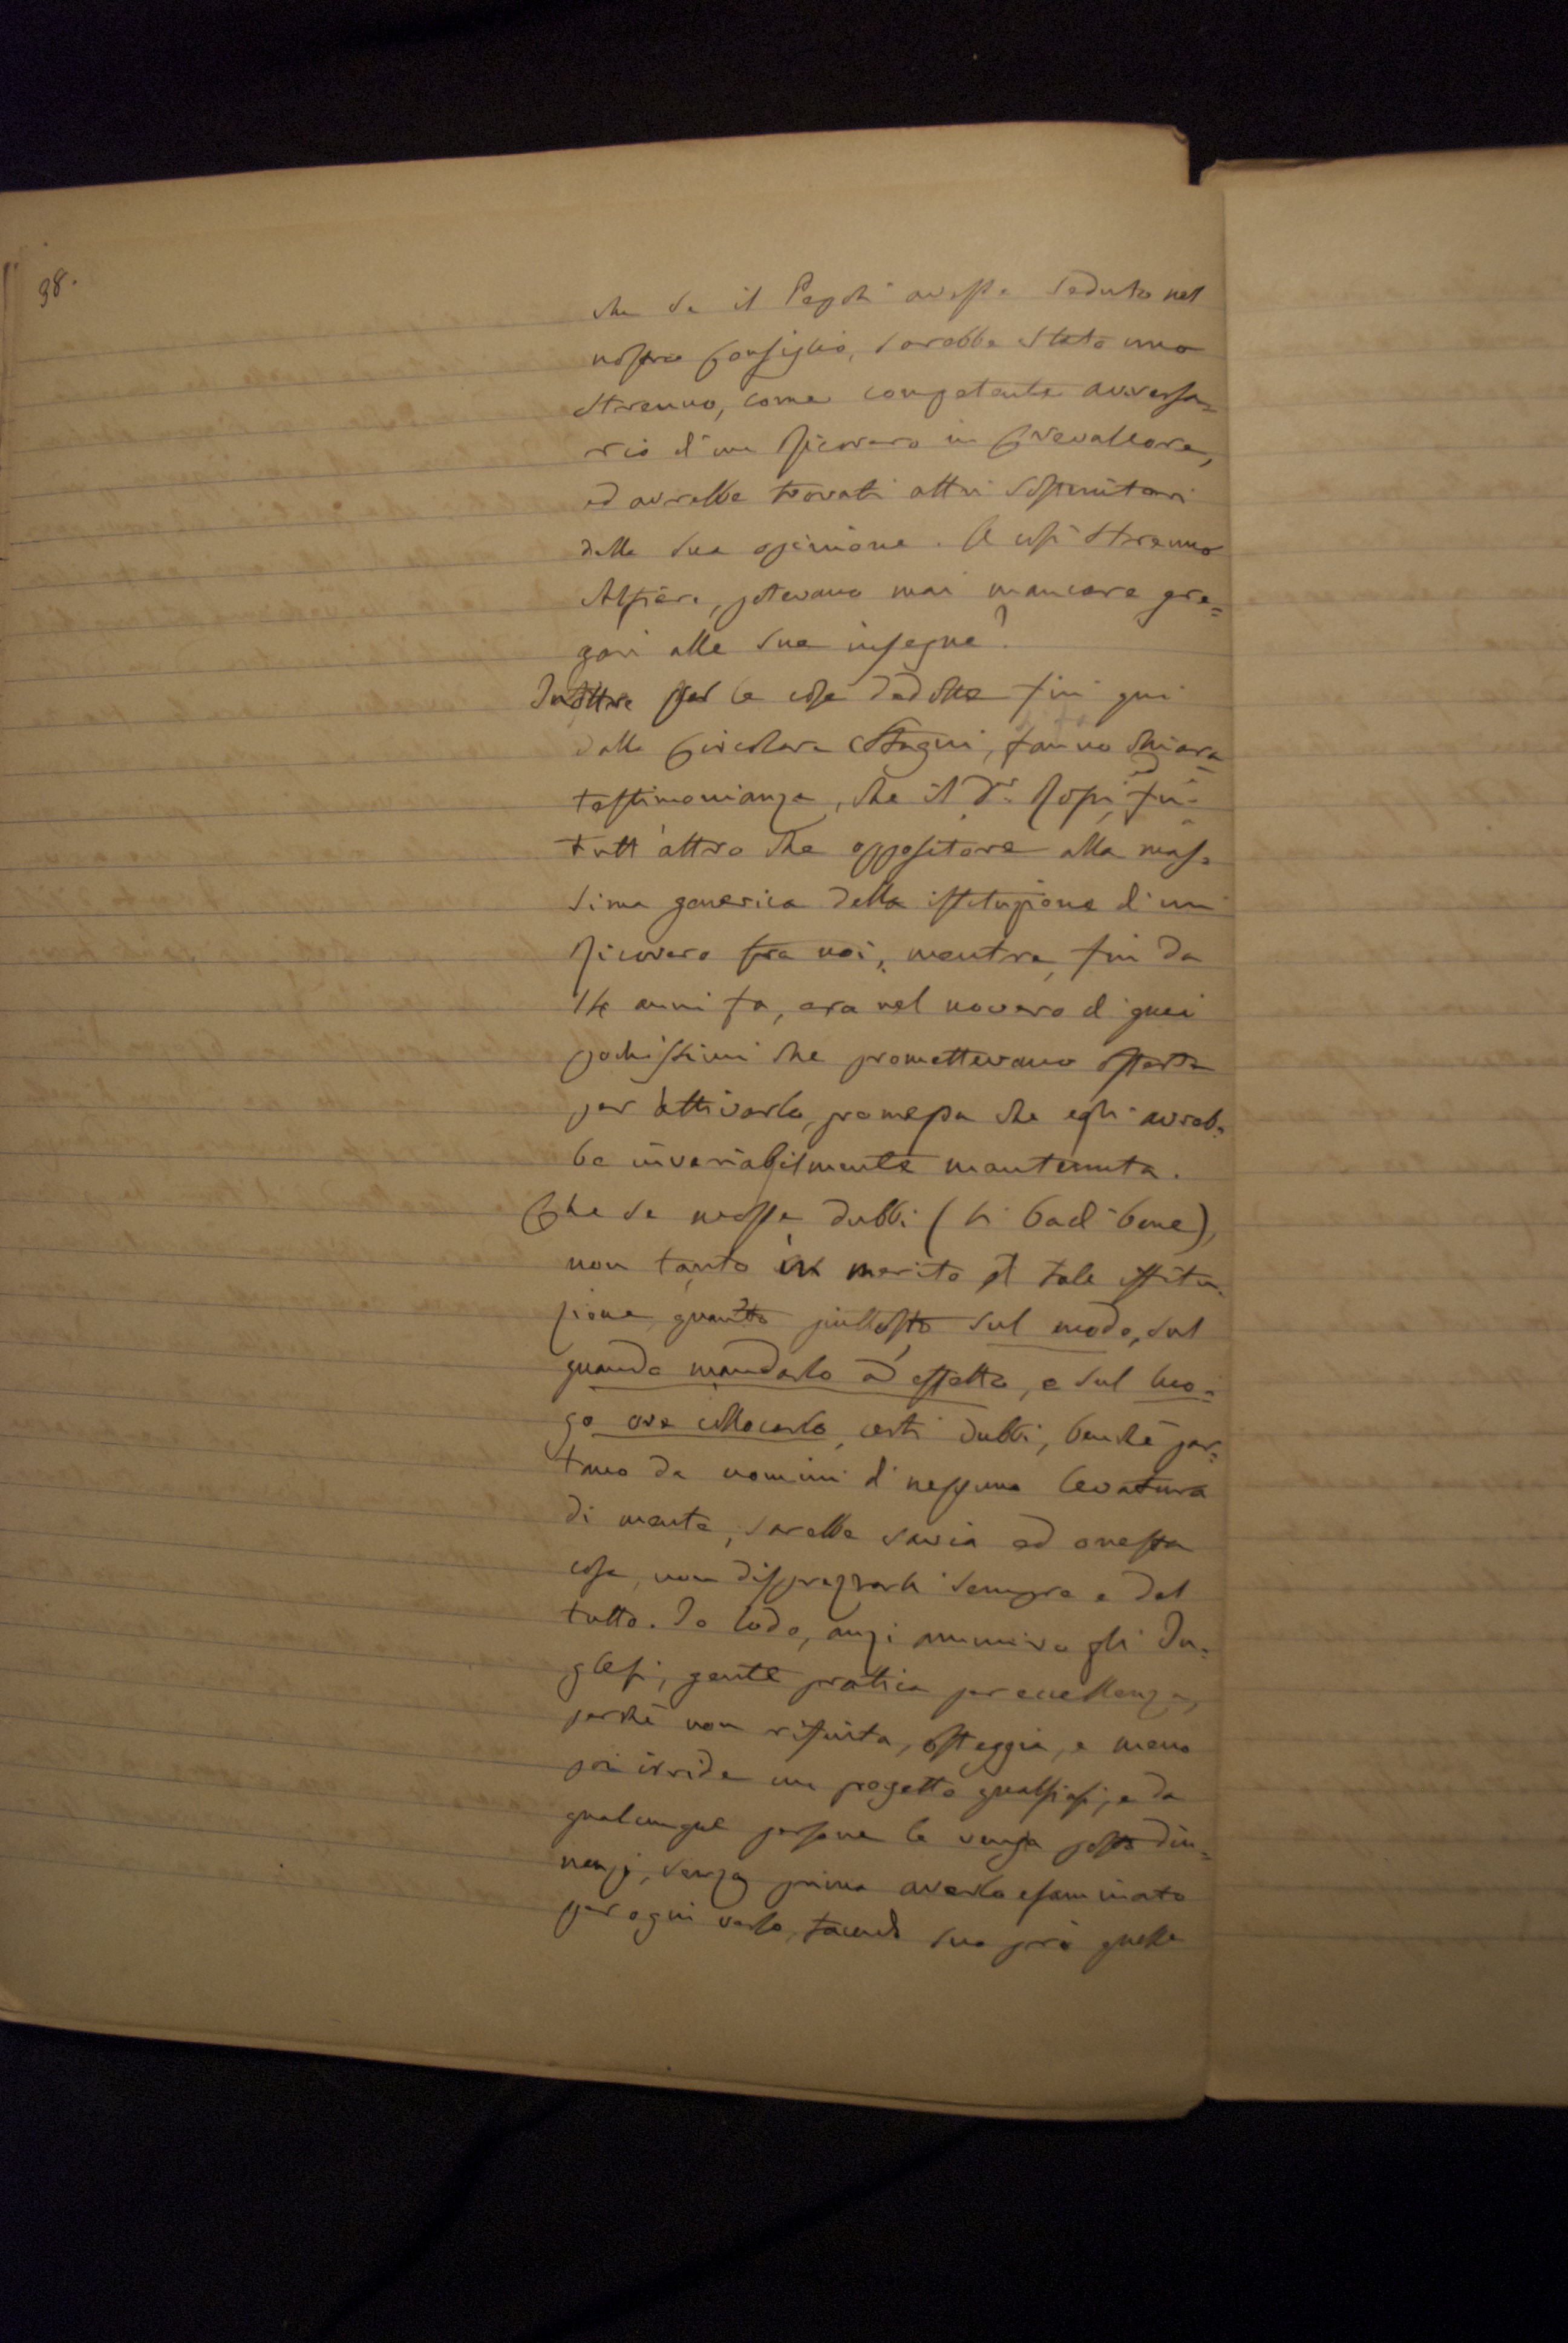 98.
che se il Pepoli avesse seduto nel
nostro Consiglio, sarebbe stato uno
strenuo, come competente avversa=
rio d'un Ricovero in Crevalcore,
ed avrebbe trovati altri sostenitori
della sua opinione. A così strenuo
Alfiere, potevano mai mancare gre=
gari alle sue insegne?
Inoltre per le cose dedotte fin qui
dalla Circolare Stagni, fanno chiara
testimonianza, che il Dr. Rossi, fu
tutt'altro che oppositore alla mas=
sima generica della istituzione d'un
Ricovero fra noi, mentre, fin da
14 anni fa, era nel novero di quei
pochissimi che promettevano offerta
per attivarlo, promessa che egli avreb=
be invariabilmente mantenuta.
Che se mosse dubbi (si badi bene),
non tanto in merito di tale istitu=
zione, quanto piuttosto sul modo, sul
quando mandarlo ad effetto, e sul luo=
go ove collocarlo, certi dubbi, benchè par=
tano da uomini di nessuna levatura
di mente, sarebbe savia ed onesta
cosa, non disprezzarli sempre e del
tutto. Io lodo, anzi ammiro gli In=
glesi, gente pratica per eccellenza,
perchè non rifiuta, osteggia, e meno
poi irride un progetto qualsiasi, e da
qualunque persona le venga posto din=
nanzi, senza prima averlo esaminato
per ogni verso, facendo suo prò quelle